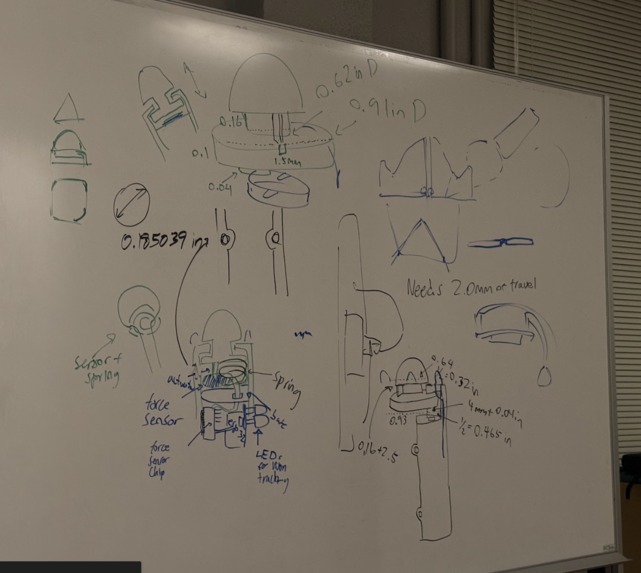 0.62in D
0.91in D
0.16
0.1
1.8mm
0.04
0.185039 in
Needs 2.0mm or travel
Sensor +
spring
spring
force
sensor
force
sensor
chip
LEDs
for
tracking
0.64
0.32 in
0.93
4mm
0.04in
1/2 = 0.465 in
0.16+2.5